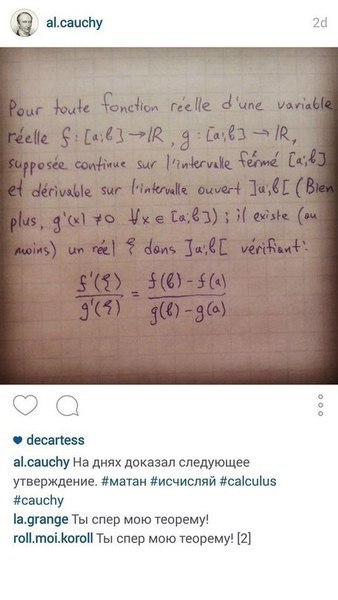 al.cauchy
2d
Pour toute fonction réelle d'une variable
réelle f : [a;b] → IR, g : [a;b] → IR,
supposée continue sur l'intervalle fermé [a;b]
et dérivable sur l'intervalle ouvert ]a;b[ (Bien
plus, g'(x) ≠ 0 ∀x ∈ [a;b]) ; il existe (au
moins) un réel ξ dans ]a;b[ vérifiant:
f'(ξ) / g'(ξ) = f(b) - f(a) / g(b) - g(a)
decartess
al.cauchy На днях доказал следующее
утверждение. #матан #исчисляй #calculus
#cauchy
la.grange Ты спер мою теорему!
roll.moi.koroll Ты спер мою теорему! [2]